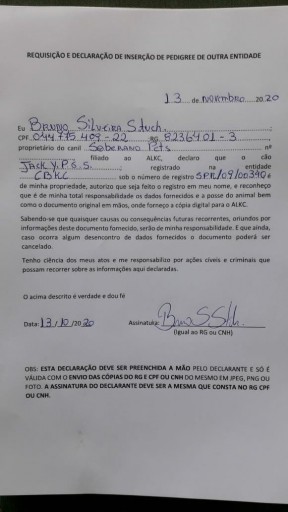 REQUISIÇÃO E DECLARAÇÃO DE INSERÇÃO DE PEDIGREE DE OUTRA ENTIDADE
13 de novembro 2020
Eu Bruno Silveira Stuch.
CPF 044775.409-22 RG 8236401-3
proprietário do canil Soberano Pets nº
filiado ao ALKC, declara que o cão
Jack V.P.S.S. registrado na entidade
CBKC sob o número de registro SPR/09/00390
de minha propriedade, autorizo que seja feito o registro em meu nome, e reconheço
que é de minha total responsabilidade os dados fornecidos e a posse do animal bem
como o documento original em mãos, onde forneço a cópia digital para o ALKC.
Sabendo-se que quaisquer causas ou consequências futuras recorrentes, oriundos por
informações deste documento fornecido, serão de minha responsabilidade. E que ainda,
caso ocorra algum desencontro de dados fornecidos o documento poderá ser
cancelado.
Tenho ciência dos meus atos e me responsabilizo por ações cíveis e criminais que
possam recorrer sobre as informações aqui declaradas.
O acima descrito é verdade e dou fé
Data: 13/10/2020 Assinatura:
(Igual ao RG ou CNH)
OBS: ESTA DECLARAÇÃO DEVE SER PREENCHIDA A MÃO PELO DECLARANTE E SÓ É
VÁLIDA COM O ENVIO DAS CÓPIAS DO RG E CPF OU CNH DO MESMO EM JPEG, PNG OU
FOTO. A ASSINATURA DO DECLARANTE DEVE SER A MESMA QUE CONSTA NO RG CPF
OU CNH.